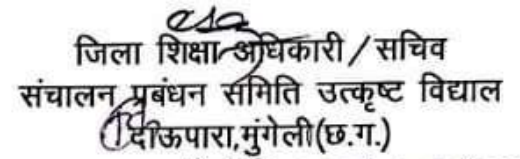 जिला शिक्षा अधिकारी / सचिव
संचालन प्रबंधन समिति उत्कृष्ट विद्याल
दाऊपारा,मुंगेली(छ.ग.)